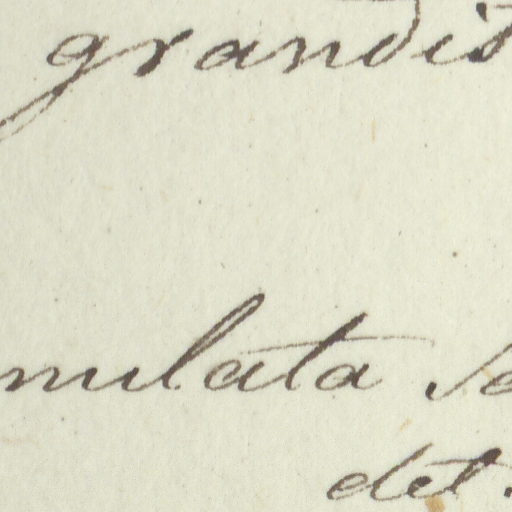 grandis
mulata se
det.